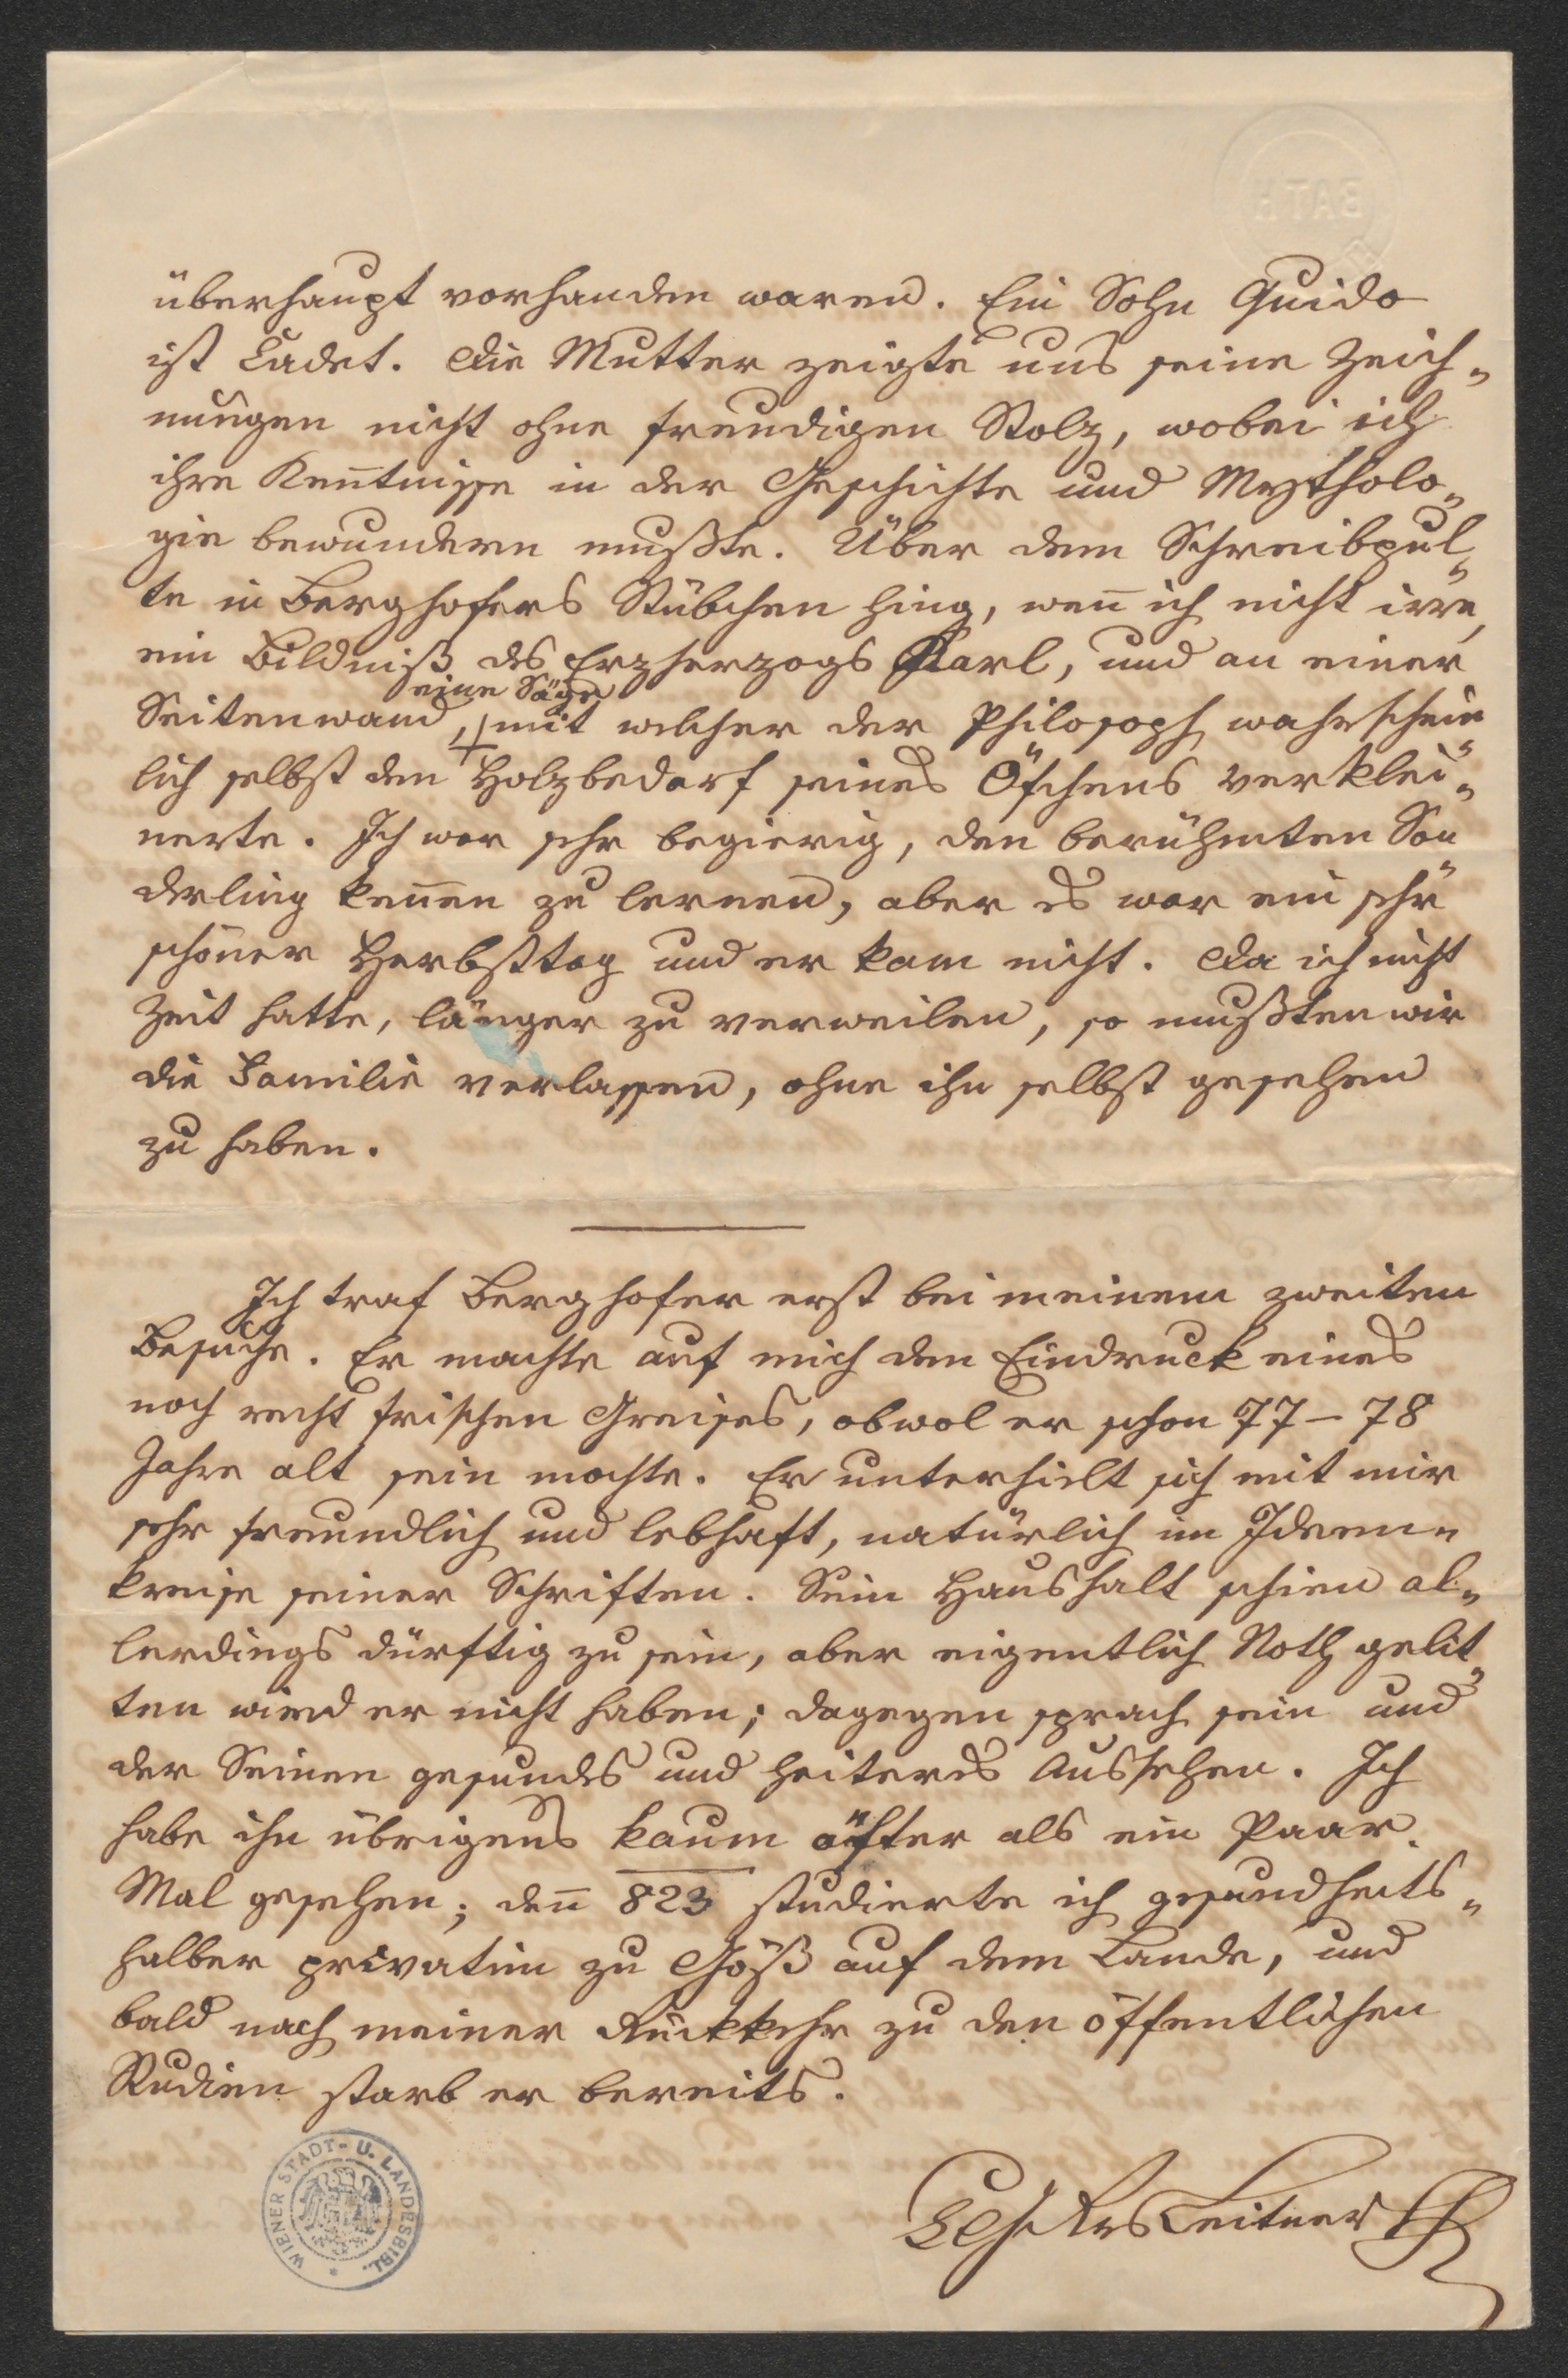 BATH
überhaupt vorhanden waren. Ein Sohn Guido
ist Cadet. Die Mutter zeigte uns seine Zeich-
nungen nicht ohne freudigen Stolz, wobei ich
ihre Keñtnisse in der Geschichte und Mytholo-
gie bewundern mußte. Über dem Schreibpul-
te in Berghofers Stübchen hing, weñ ich nicht irre,
ein Bildniß des Erzherzogs Karl, und an einer
eine Säge
Seitenwand, mit welcher der Philosoph wahrschein-
lich selbst den Holzbedarf seines Öfchens verklei-
nerte. Ich war sehr begierig, den berühmten Son-
derling keñen zu lernen, aber es war ein sehr
schöner Herbsttag und er kam nicht. Da ich nicht
Zeit hatte, länger zu verweilen, so mußten wir
die Familie verlassen, ohne ihn selbst gesehen
zu haben.
Ich traf Berghofer erst bei meinem zweiten
Besuche. Er machte auf mich den Eindruck eines
noch recht frischen Greises, obwol er schon 77-78
Jahre alt sein mochte. Er unterhielt sich mit mir
sehr freundlich und lebhaft, natürlich im Ideen-
kreise seiner Schriften. Sein Haushalt schien al-
lerdings dürftig zu sein, aber eigentlich Noth gelit-
ten wird er nicht haben; dagegen sprach sein und
der Seinen gesundes und heiteres Aussehen. Ich
habe ihn übrigens kaum öfter als ein Paar
Mal gesehen; deñ 823 studierte ich gesundheits-
halber privatim zu Göß auf dem Lande, und
bald nach meiner Rückkehr zu den öffentlichen
Studien starb er bereits.
Leitner
WIENER STADT- U. LANDESBIBL.